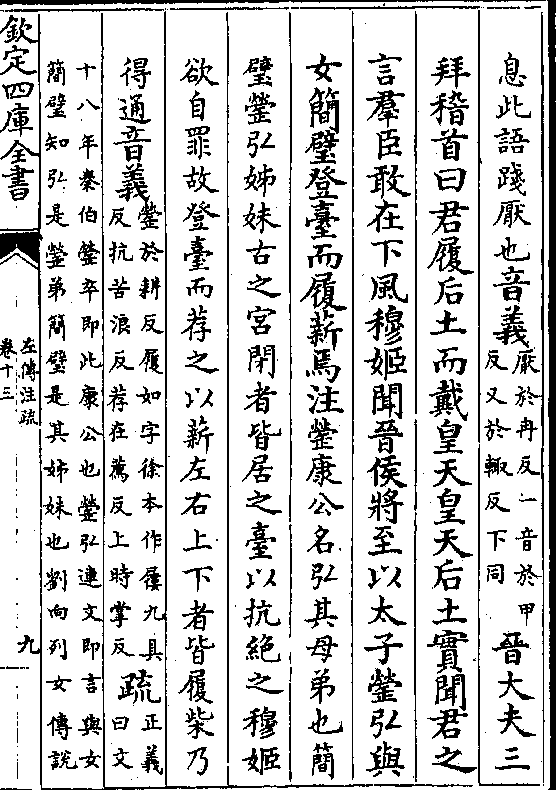 息此語踐厭也音義厭於冉反一音於甲
反又於輒反下同晉大夫三
拜稽首曰君履后土而戴皇天皇天后土實聞君之
言羣臣敢在下風穆姬聞晉侯將至以太子罃弘與
女簡璧登臺而履薪焉注罃康公名弘其母弟也簡
璧罃弘姊妹古之宮閉者皆居之臺以抗絶之穆姬
欲自罪故登臺而荐之以薪左右上下者皆履柴乃
得通音義罃於耕反履如字徐本作屨九具
反抗苦浪反荐在薦反上時掌反疏正義
曰文
十八年秦伯罃卒即此康公也罃弘連文即言與女
簡璧知弘是罃弟簡璧是其姊妹也劉向列女傳説
欽定四庫全書
左傳注疏
卷十三
九